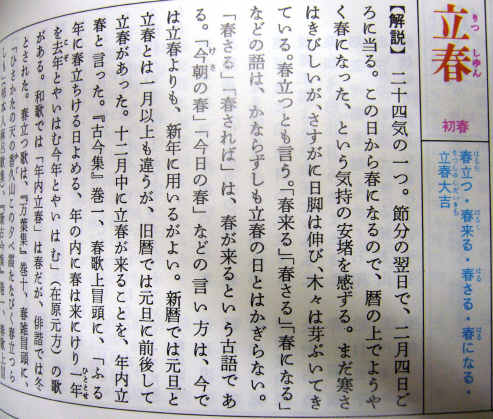 立春
初春
春立つ・春来る・春さる・春になる・
立春大吉
【解説】 二十四気の一つ。節分の翌日で、二月四日ご
ろに当る。この日から春になるので、暦の上でようや
く春になった、という気持の安堵を感ずる。まだ寒さ
はきびしいが、さすがに日脚は伸び、木々は芽ぶいてき
ている。春立つとも言う。「春来る」「春さる」「春になる」
などの語は、かならずしも立春の日とはかぎらない。
「春さる」「春されば」は、春が来るという古語であ
る。「今朝の春」「今日の春」などの言い方は、今で
は立春よりも、新年に用いるがよい。新暦では元旦と
立春とは一月以上も違うが、旧暦では元旦に前後して
立春があった。十二月中に立春が来ることを、年内立
春と言った。『古今集』巻一、春歌上冒頭に、「ふる
年に春立ちける日よめる、年の内に春は来にけり一年
を去年とやいはむ今年とやいはむ」(在原元方)の歌
がある。和歌では「年内立春」は春だが、俳諧では冬
とされた。春立つ歌は、『万葉集』巻十、春雑冒頭に、
「ひさかたの天の香久山この夕べ霞たなびく春立つら